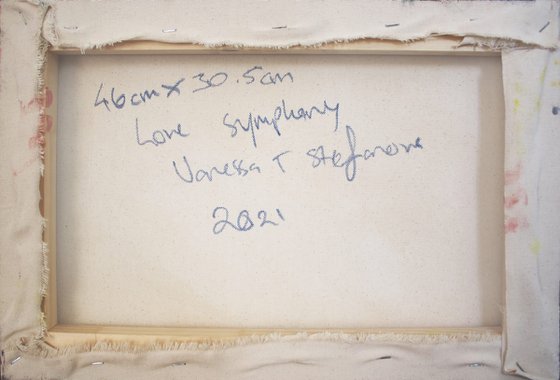 46cm x 30.5cm
Love Symphony
Vanessa T Stefanova
2021